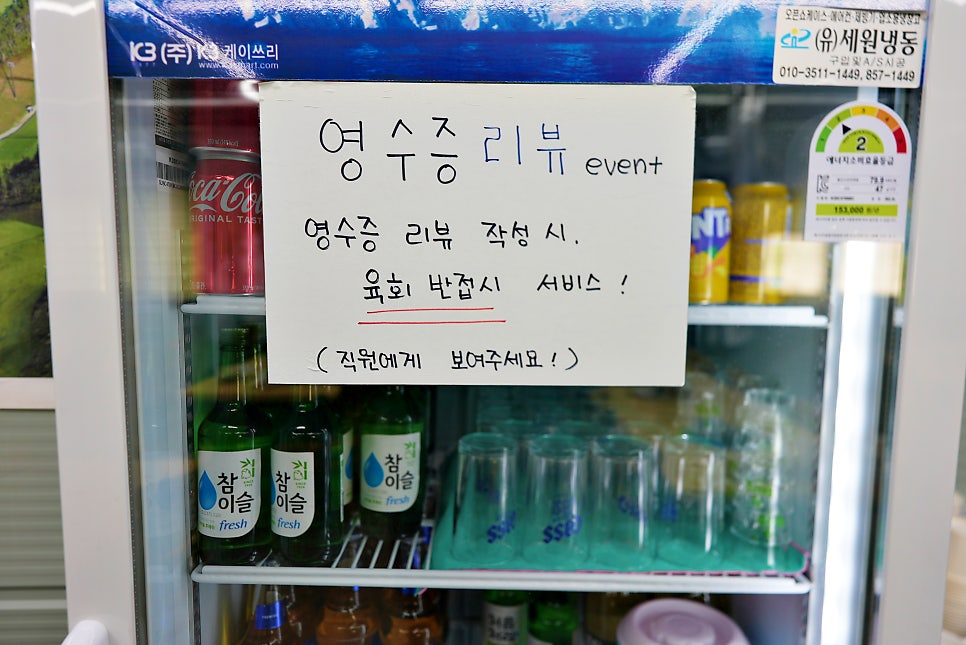 K3 (주) K3 케이쓰리
오픈쇼케이스·에어컨·제빙기·업소용냉장고
(유)세원냉동
구입 및 A/S시공
010-3511-1449, 857-1449
영수증 리뷰 event
영수증 리뷰 작성 시.
육회 반접시 서비스 !
(직원에게 보여주세요!)
Coca-Cola
ORIGINAL TASTE
2
에너지소비효율등급
79.9
47
153,000 원/년
참이슬
fresh
참이슬
fresh
참이슬
fresh
CASS